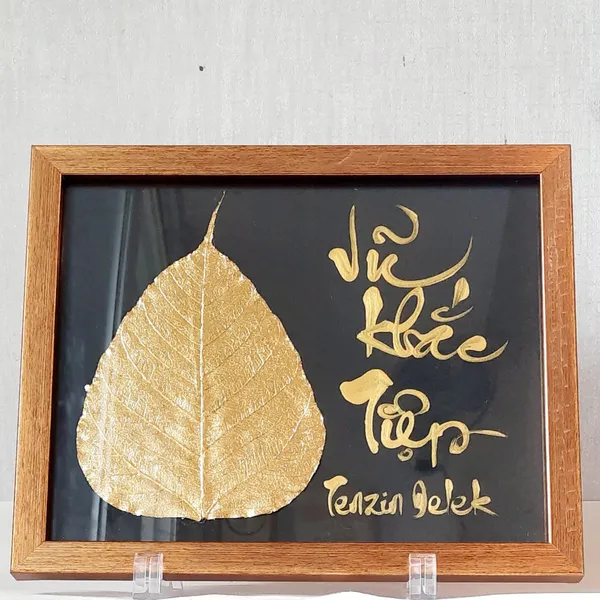 Vũ
Khắc
Tiệp
Tenzin Delek